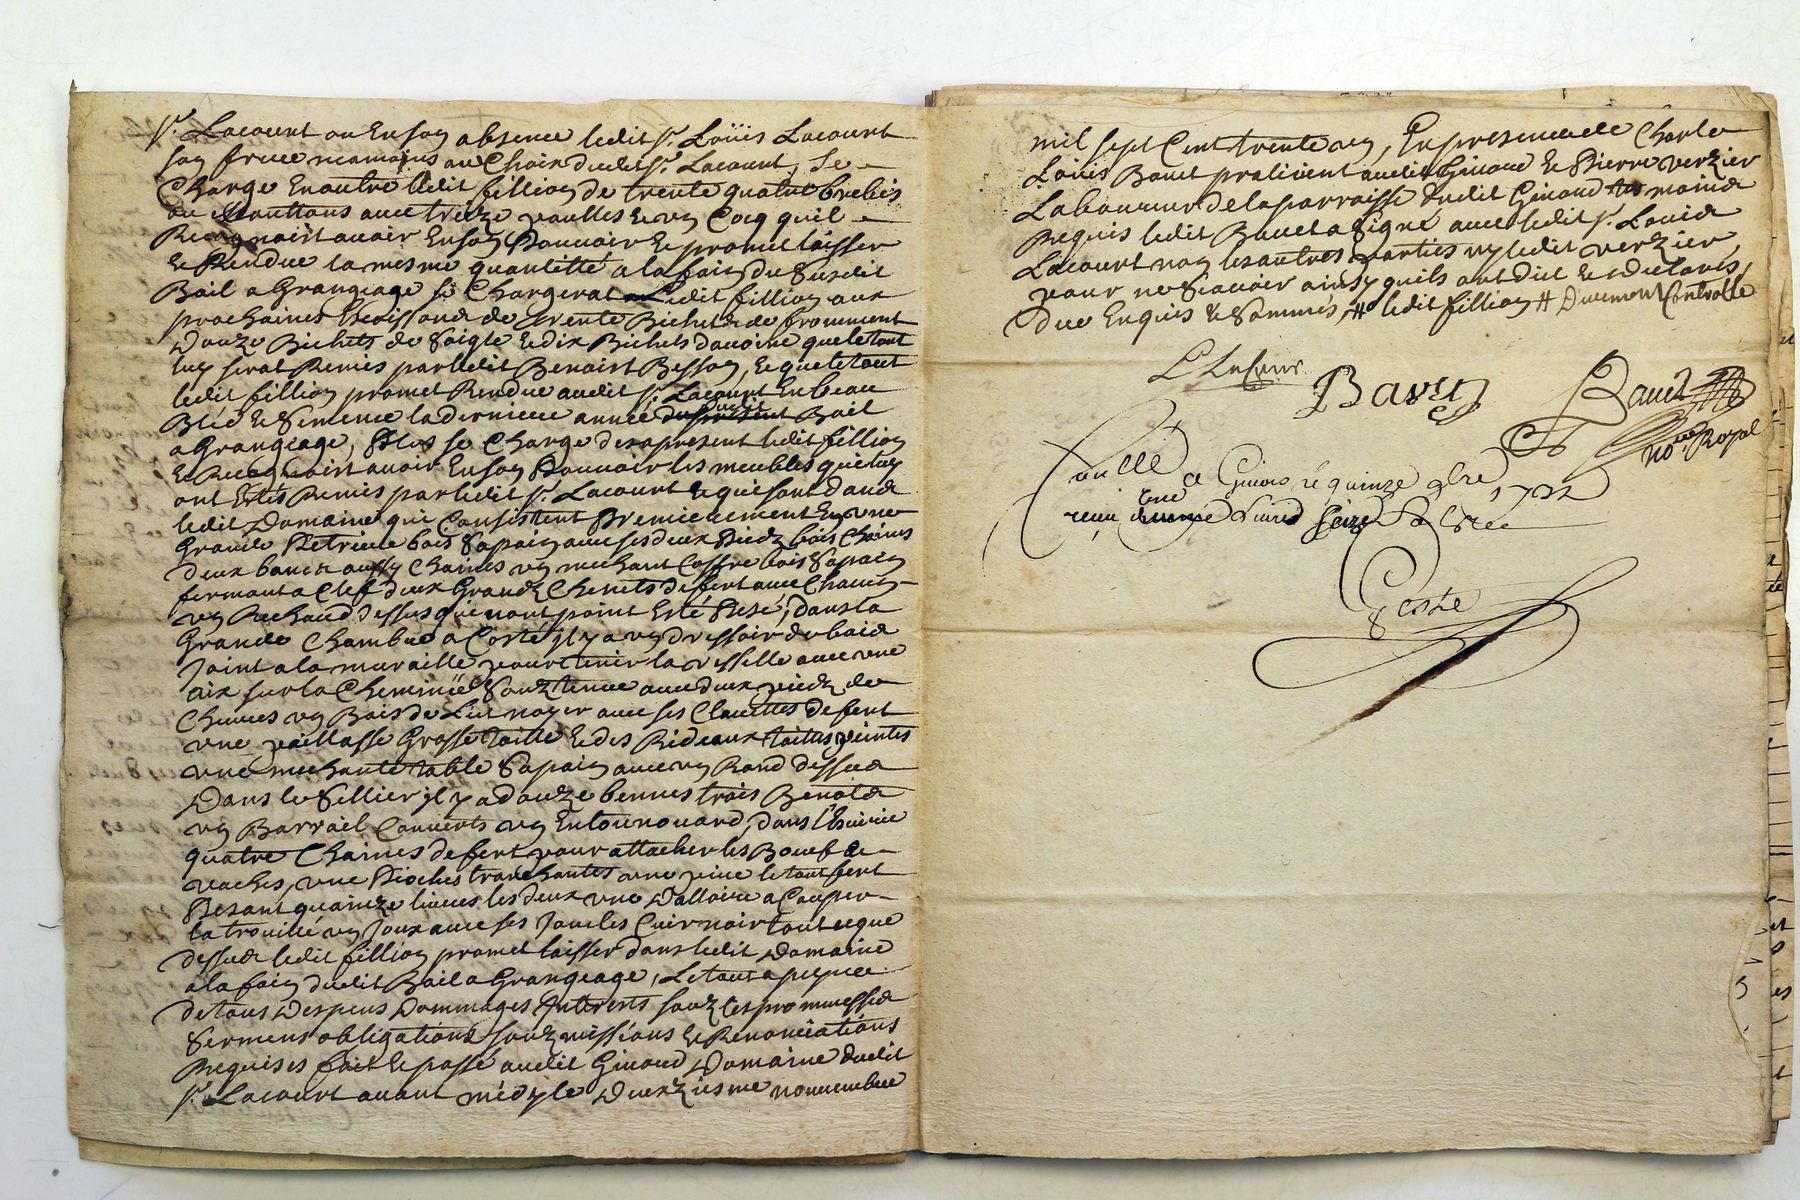 Sr. Lacourt ou En son absence ledit Sr. Loüis Lacourt
son frere neamoins au Choix dudit Sr. Lacourt, Se
Charge En outre ledit fillion de trente quatre brebis
ou Mouttons avec treize poulles & un Cocq quil
Recognoist avoir En son Pouvoir & promet laisser
& Rendre la mesme quantitté a la fain du Susdit
Bail a Grangeage Se Chargerat ledit fillion aux
prochaines de trente Bichets de fromment
Douze Bichets de Soigle & dix Bichets davoine que le tout
luy serat Remis par ledit Benoist Besson, & que le tout
ledit fillion promet Rendre audit Sr. Lacourt En beau
Bled & Semence la derniere année du Bail
a Grangeage, Plus se Charge des apresent ledit fillion
& Recognoist avoir En son Pouvoir les meubles que luy
ont Estés Remis par ledit Sr. Lacourt & qui sont dans
ledit Domaine qui Consistent Premierement En une
Grande Petriere bois Sapain avec ses deux Piedz bois Chaines
deux bancs aussy Chaines un mechant Coffre bois Sapain
fermant a Clef deux Grandz Chenets de fert avec Chacun
un Rechaud dessus qui nont point Esté Pesé, dans la
Grande Chambre a Costé jl y a un dressoir de bois
Joint a la muraille pour tenir la vesselle avec une
aix sur la Cheminëe Souztenue avec deux piedz de
Chevres un Bois de Lict noyer avec ses Clavettes de fert
une paillasse Grosse Toille & des Rideaux toilles peintes
une mechante table Sapain avec un Rond dessus
Dans le Sellier jl y a douze bennes trois Benots
un Barrail Couverts un Entounouard, dans l'Escurie
quatre Chaines de fert pour attacher les Boeufs &
vaches, une Pioches tranchantes une le tout fert
Pesant quainze livres les deux une a Coupper
la un Joux avec ses Joucles Cuir noir tout ce que
dessus ledit fillion promet laisser dans ledit Domaine
a la fain dudit Bail a Grangeage, Le tout a peyne
de tous Despens Dommages Jntterests souz les prommesses
Sermens obligations souzmissions & Renonciations
Requises fait & passé audit Ginoud Domaine dudit
Sr. Lacourt avant médy le Duexziesme novembre
mil sept Cent trente un, En presence de Charle
Loüis Bavet praticient audit Ginoud & Pierre Verzier
Laboureur de la parroisse dudit Ginoud tesmoins
Requis ledit Bavet a Signé avec ledit Sr. Louis
Lacourt non les autres parties ny ledit verzier,
pour ne Scavoir ainsy quils ont dict & declarés,
due Enquis & Sommés, # ledit fillion # Duement Controllé
Bavet
nore. Royal
a le quinze 9bre
receu livres Seize s
Coste